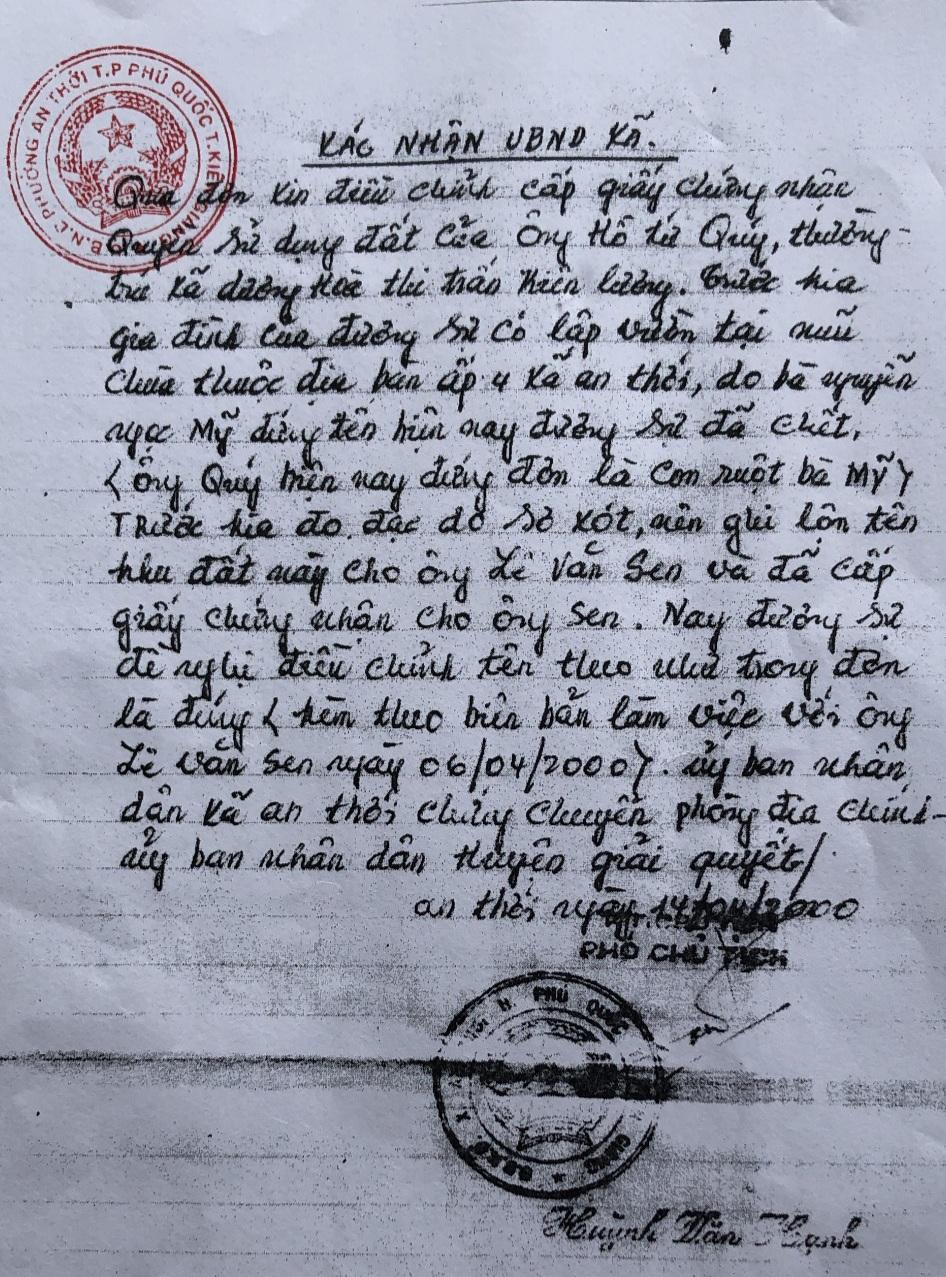 P. PHƯỜNG AN THỚI T.P PHÚ QUỐC T.KIÊN GIANG
XÁC NHẬN UBND XÃ.
Qua đơn xin điều chỉnh cấp giấy chứng nhận
Quyền sử dụng đất của ông Hồ tứ Quý, thường
trú xã dương Hoà thị trấn kiên lương. Trước kia
gia đình của đương sự có lập vườn tại núi
Chùa thuộc địa bàn ấp 4 xã an thới, do bà nguyễn
ngọc Mỹ đứng tên hiện nay đương sự đã chết,
( ông Quý hiện nay đứng đơn là con ruột bà Mỹ )
Trước kia đo đạc do sơ xót, nên ghi lộn tên
khu đất này cho ông Lê Văn Sen và đã cấp
giấy chứng nhận cho ông Sen. Nay đương sự
đề nghị điều chỉnh tên theo như trong đơn
là đúng ( kèm theo biên bản làm việc với ông
Lê văn Sen ngày 06/04/2000 ). ủy ban nhân
dân xã an thới chứng chuyển phòng địa chính-
ủy ban nhân dân huyện giải quyết/
an thới ngày 14/04/2000
PHÓ CHỦ TỊCH
H. PHÚ QUỐC
GIANG
Huỳnh Văn Hạnh